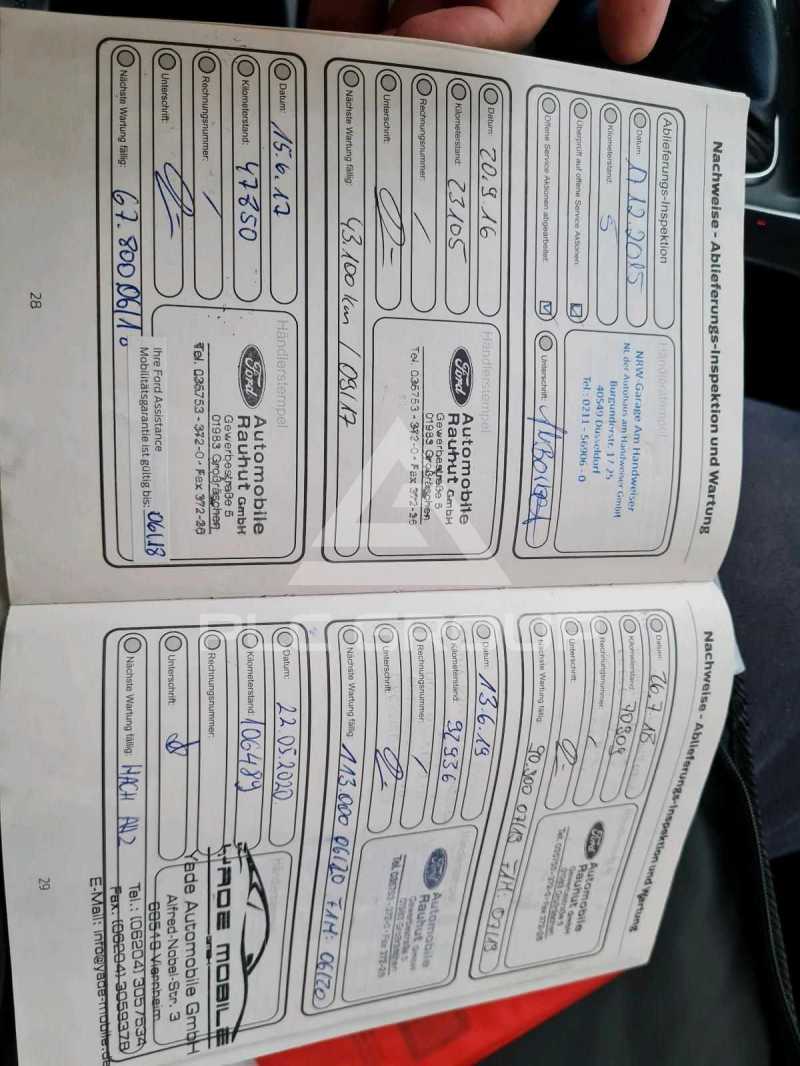 Nachweise - Ablieferungs-Inspektion und Wartung
Ablieferungs-Inspektion
Datum: 17.12.2015
Kilometerstand: 5
Überprüft auf offene Service Aktionen:
Offene Service Aktionen abgearbeitet:
Händlerstempel
NRW-Garage Am Handweiser
NL der Autohaus am Handweiser GmbH
Burgunderstr. 17-25
40549 Düsseldorf
Tel.: 0211 - 56906 - 0
Unterschrift:
Datum: 20.9.16
Kilometerstand: 23105
Rechnungsnummer: /
Unterschrift:
Nächste Wartung fällig: 43.100 km / 09/17
Händlerstempel
Ford
Automobile
Rauhut GmbH
Gewerbestraße 5
01983 Großräschen
Tel. 035753 - 372-0 · Fax 372-26
Datum: 15.6.17
Kilometerstand: 47850
Rechnungsnummer: /
Unterschrift:
Nächste Wartung fällig: 67.800 06/1
Händlerstempel
Ford
Automobile
Rauhut GmbH
Gewerbestraße 5
01983 Großräschen
Tel. 035753 - 372-0 · Fax 372-26
Ihre Ford Assistance
Mobilitätsgarantie ist gültig bis: 06/18
28
Nachweise - Ablieferungs-Inspektion und Wartung
Datum: 26.7.18
Kilometerstand: 70909
Rechnungsnummer: /
Unterschrift:
Nächste Wartung fällig: 90.900 07/19 FIM: 07/19
Ford
Automobile
Rauhut GmbH
Gewerbestraße 5
01983 Großräschen
Tel. 035753 - 372-0 · Fax 372-26
Datum: 13.6.19
Kilometerstand: 92936
Rechnungsnummer: /
Unterschrift:
Nächste Wartung fällig: 113.000 06/20 FIM: 06/20
Ford
Automobile
Rauhut GmbH
Gewerbestraße 5
01983 Großräschen
Tel. 035753 - 372-0 · Fax 372-26
Datum: 22.05.2020
Kilometerstand: 106489
Rechnungsnummer:
Unterschrift:
Nächste Wartung fällig: NACH ANZ
YADE MOBILE
Yade Automobile GmbH
Alfred-Nobel-Str. 3
68519 Viernheim
Tel.: (06204) 3057534
Fax: (06204) 3059378
E-Mail: info@yade-mobile.de
29
PLC GROUP